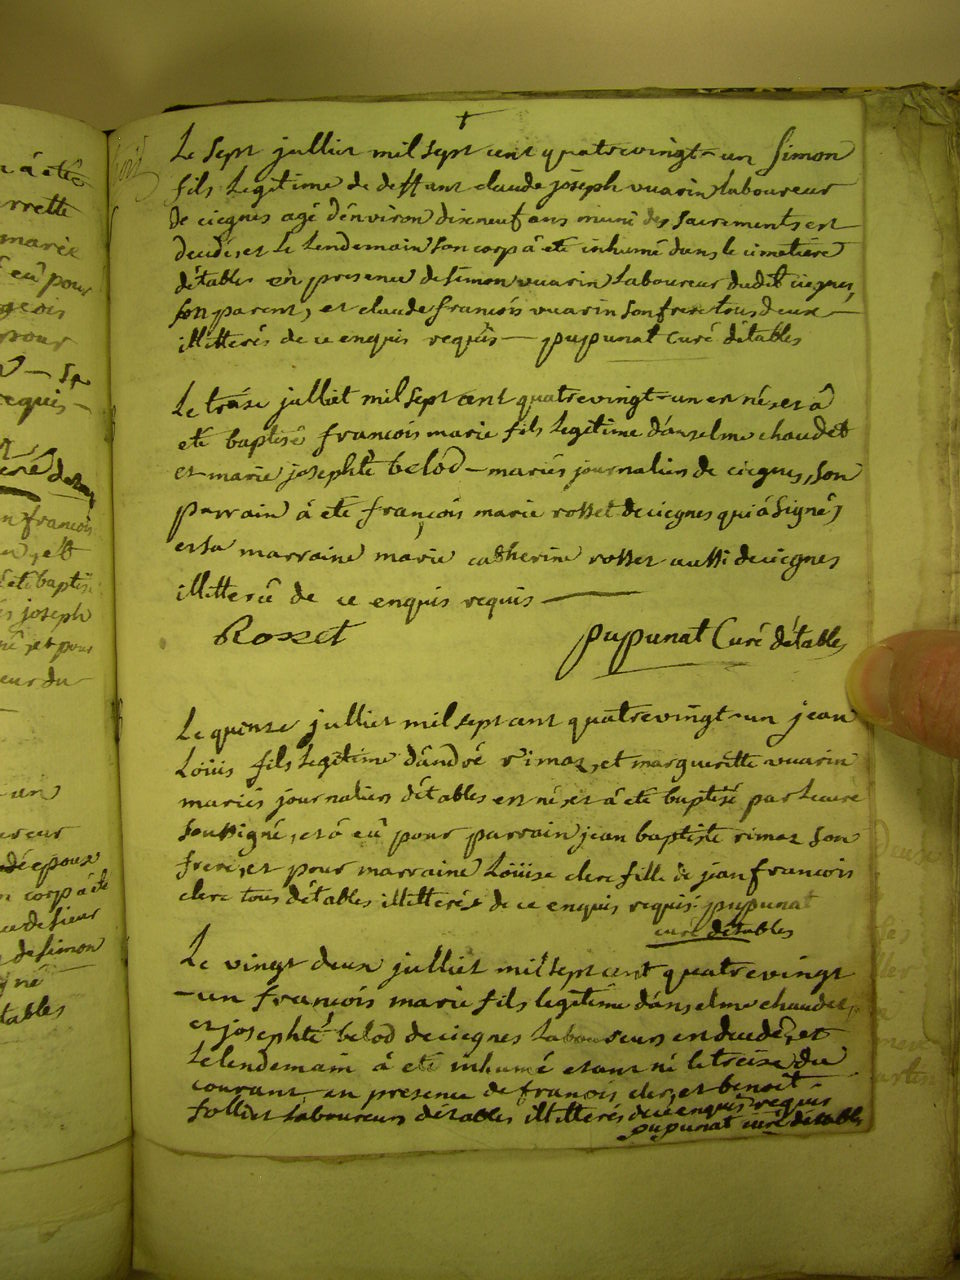 à été
rrette
marie
eû pour
geois
pour
equis
n francois
baptis
joseph
et pour
eur du
un
ereur
dée epoux
corp à été
de sieur
de simon
né
tables
+
Le sept julliet mil sept cent quatrevingt-un Simon
fils legitime de deffunt claude joseph vuarin laboureur
de ciegnes agé d'environ dixneuf ans muni des sacrements est
decédé, et le lendemain son corp à eté inhumé dans le cimetiere
détables en presence de simon vuarin laboureur dudit ciegnes,
son parent, et claude francois vuarin son frere tous deux —
illitterés de ce enquis requis — pupunat curé détables
Le treise julliet mil sept cent quatrevingt-un est né, et à
eté baptisé francois marie fils legitime d'anselme chaudet
et marie josephte belod — mariés journaliers de ciegnes, son
parrain à eté francois marie rosset de ciegnes qui à signé,
et sa marraine marie catherine rosset aussi de ciegnes
illitterée de ce enquis requis —
Rosset pupunat Curé détables
Le quinze julliet mil sept cent quatrevingt-un jean
Loüis fils legitime d'andré rimaz, et margueritte vuarin
mariés journaliers détables est né, et à eté baptisé par le curé
soussigné, et à eû pour parrain jean baptiste rimaz son
frere, et pour marraine Loüise clerc fille de jean francois
clerc tous détables illitterés de ce enquis requis. pupunat
curé détables
Le vingt deux julliet mil sept cent quatrevingt
-un francois marie fils legitime d'anselme chaudet,
et josephte belod de ciegnes laboureurs est decedé, et
le lendemain à eté inhumé etant né le treise du
courant, en presence de francois clerc, et benoit
folliet laboureurs détables illitterés de ce enquis requis
pupunat curé détables